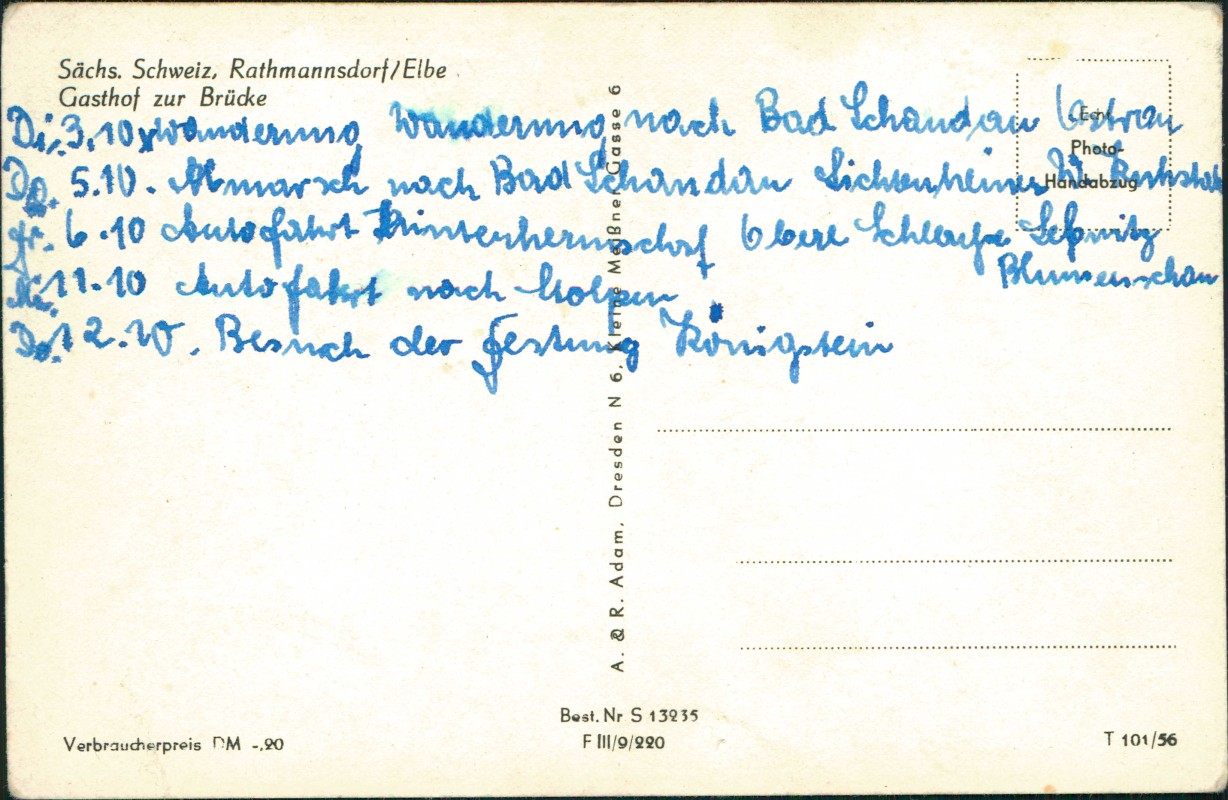 Sächs. Schweiz, Rathmannsdorf/Elbe
Gasthof zur Brücke
Echt
Photo-
Handabzug
Di. 3.10 Wanderung Wanderung nach Bad Schandau Ostrau
Do. 5.10. Abmarsch nach Bad Schandau Lichtenheiner
Fr. 6.10 Autofahrt Hinterhermsdorf Obere Schleuse Sebnitz
Blumenschau
Mi. 11.10 Autofahrt nach Stolpen
Do. 12.10. Besuch der Festung Königstein
A. & R. Adam, Dresden N 6, Kleine Meißner Gasse 6
Best. Nr S 13235
F III/9/220
Verbraucherpreis DM -.20
T 101/56